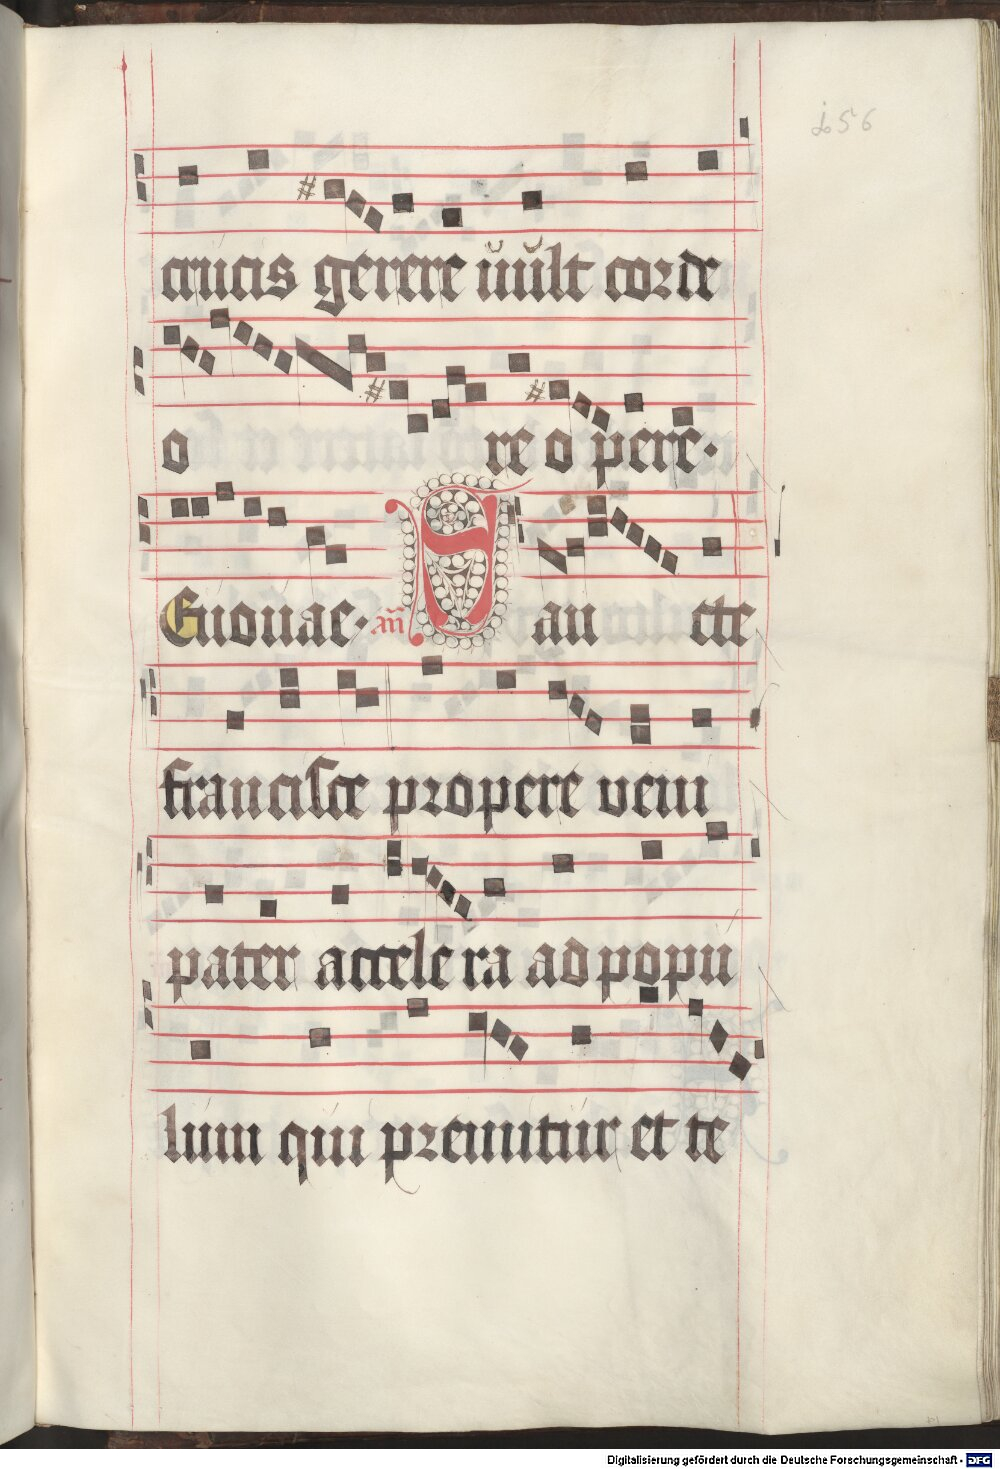 156
crucis gerere uult corde
o re opere·
Euouae· añ San cte
francisce propere ueni
pater accelera ad popu
lum qui premitur et te
Digitalisierung gefördert durch die Deutsche Forschungsgemeinschaft - DFG